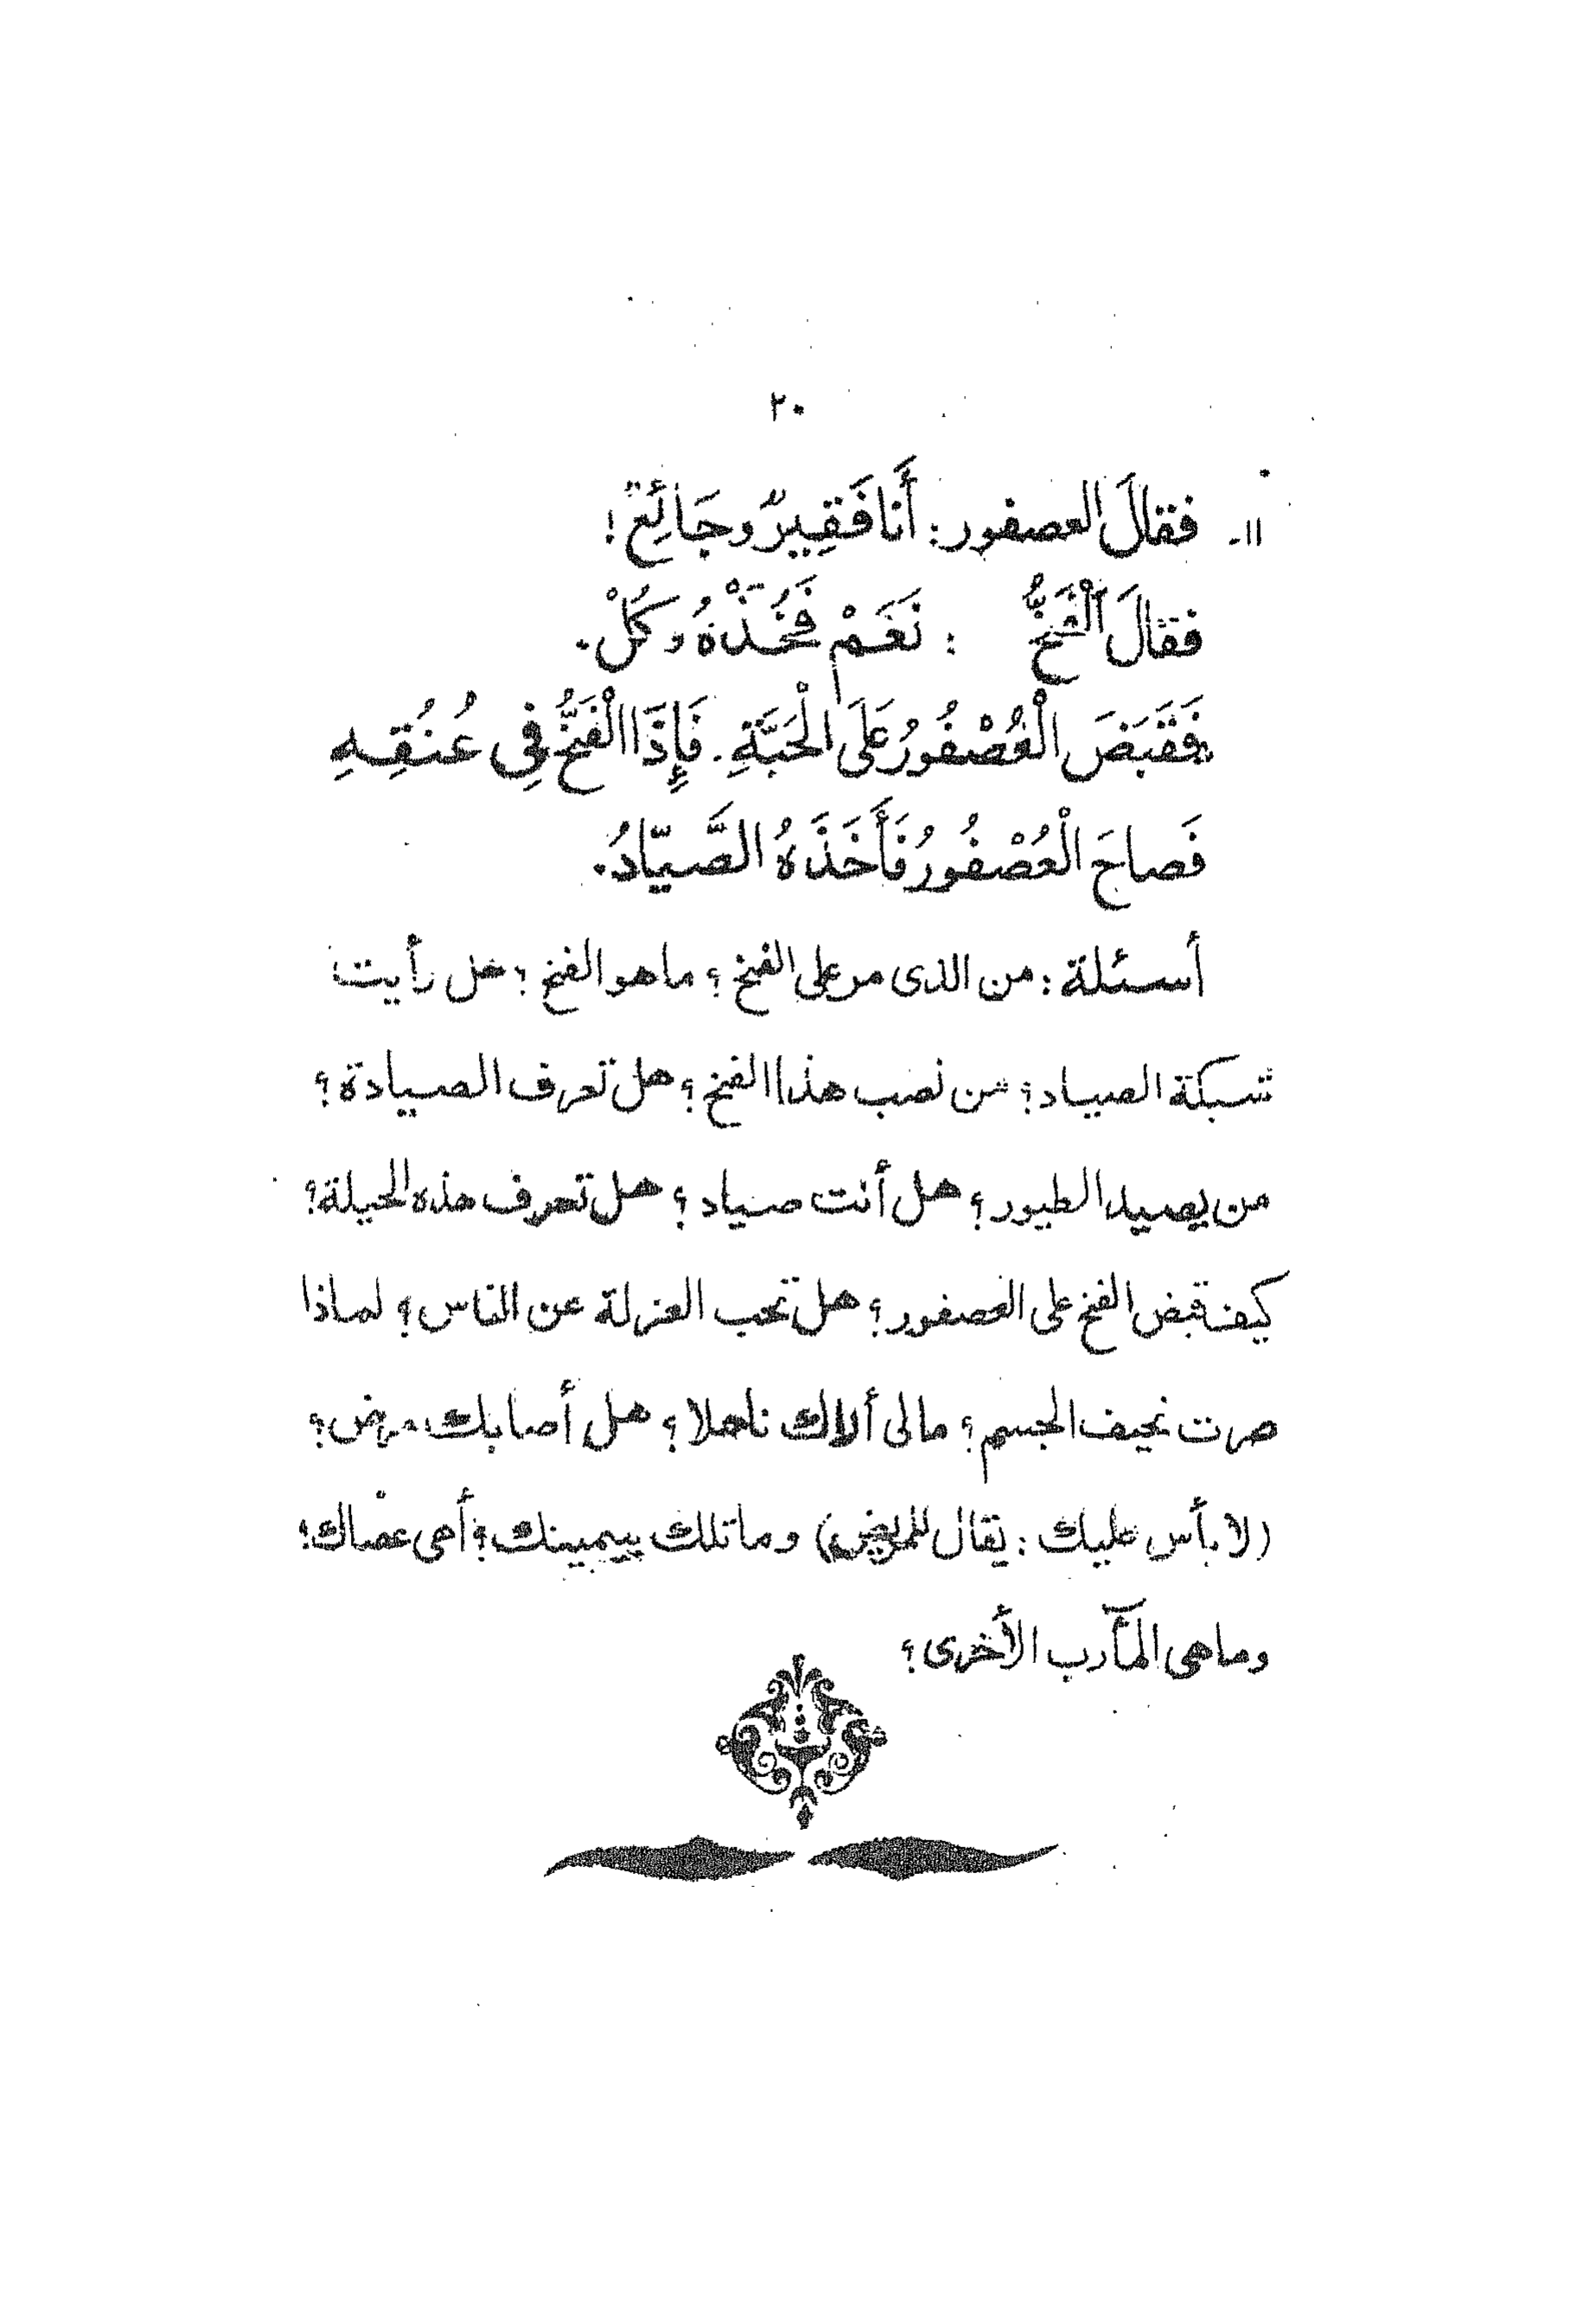 ٢٠
١١- فقالَ العصفور: أَنا فَقِيرٌ وجَائِعٌ!
فقالَ الْفَخُّ : نَعَمْ فَخُذْهُ وكُلْ.
فَقَبَضَ الْعُصْفُورُ عَلَى الْحَبَّةِ. فَإِذَا الْفَخُّ فِى عُنُقِهِ
فَصاحَ الْعُصْفُورُ فَأَخَذَهُ الصَّيّادُ.
أسئلة: من الذى مر على الفخ؟ ما هو الفخ؟ هل رأيت
شبكة الصياد؟ من نصب هذا الفخ؟ هل تعرف الصيادة؟
من يصيد الطيور؟ هل أنت صياد؟ هل تعرف هذه الحيلة؟
كيف قبض الفخ على العصفور؟ هل تحب العزلة عن الناس؟ لماذا
صرت نحيف الجسم؟ مالى ألاك ناحلا؟ هل أصابك مرض؟
(لا بأس عليك: يقال للمريض) وما تلك بيمينك؟ أهى عصاك؟
وما هى المآرب الأخرى؟